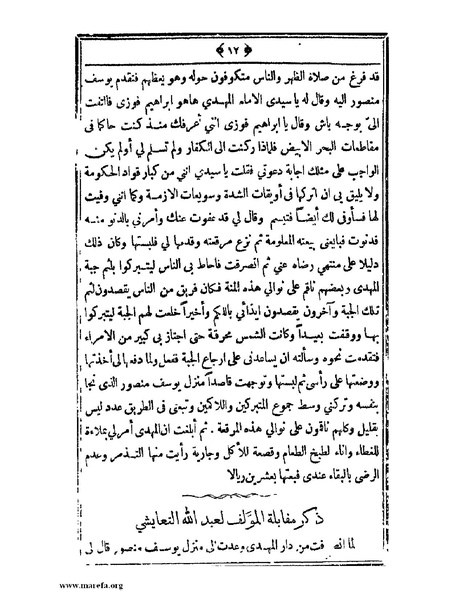 ﴿ ١٢ ﴾
قد فرغ من صلاة الظهر والناس متكوفون حوله وهو يعظهم فتقدم يوسف
منصور اليه وقال له ياسيدى الامام المهدى هاهو ابراهيم فوزى فالتفت
الىّ بوجه باش وقال يا ابراهيم فوزى اننى أعرفك منذ كنت حاكما فى
مقاطعات البحر الابيض فلماذا ركنت الى الكفار ولم تسلم لى أولم يكن
الواجب على مثلك اجابة دعوتى فقلت ياسيدى اننى من كبار قواد الحكومة
ولا يليق بى ان اتركها فى أويقات الشدة وسويعات الازمة وكما اننى وفيت
لها فسأوفى لك أيضاً فتبسم وقال لى قد عفوت عنك وأمرنى بالدنو منه
فدنوت فبايعنى بيعته المعلومة ثم نزع مرقعته وقدمها لى فلبستها وكان ذلك
دليلا على منتهى رضاه عنى ثم انصرفت فاحاط بى الناس ليتبركوا بلثم جبة
المهدى وبعضهم ناقم على نوالي هذه المنة فكان فريق من الناس يقصدون لثم
تلك الجبة وآخرون يقصدون ايذائى باللكم وأخيراً خلعت لهم الجبة ليتبركوا
بها ووقفت بعيداً وكانت الشمس محرقة حتى اجتاز بى كبير من الامراء
فتقدمت نحوه وسألته ان يساعدنى على ارجاع الجبة ففعل ولما دفعها الى أخذتها
ووضعتها على رأسى ثم لبستها وتوجهت قاصداً منزل يوسف منصور الذى نجا
بنفسه وتركني وسط جموع المتبركين واللاكمين وتبعنى فى الطريق عدد ليس
بقليل وكلهم ناقمون على نوالي هذه المرقعة . ثم أبلغت ان المهدى أمر لي بملاءة
للغطاء واناء لطبخ الطعام وقصعة للأكل وجارية رأيت منها التذمر وعدم
الرضى بالبقاء عندى فبعتها بعشرين ريالا
ذكر مقابلة المؤلف لعبد الله التعايشي
لما انصرفت من دار المهدى وعدت الى منزل يوسف منصور قال لى
www.marefa.org